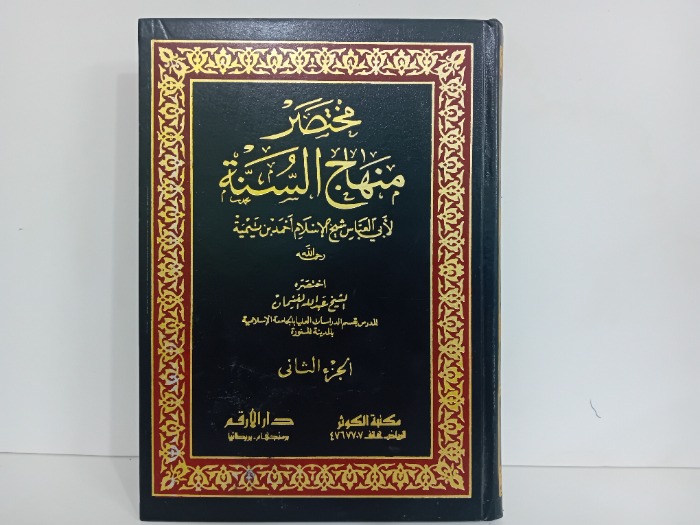 مختصر
منهاج السنة
لأبي العباس شيخ الإسلام أحمد بن تيمية
رحمه الله
اختصره
الشيخ عبد الله الغنيمان
المدرس بقسم الدراسات العليا بالجامعة الإسلامية
بالمدينة المنورة
الجزء الثاني
مكتبة الكوثر
الرياض هاتف ٤٧٦١٧٧٠٧
دار الأرقم
برمنجهام - بريطانيا